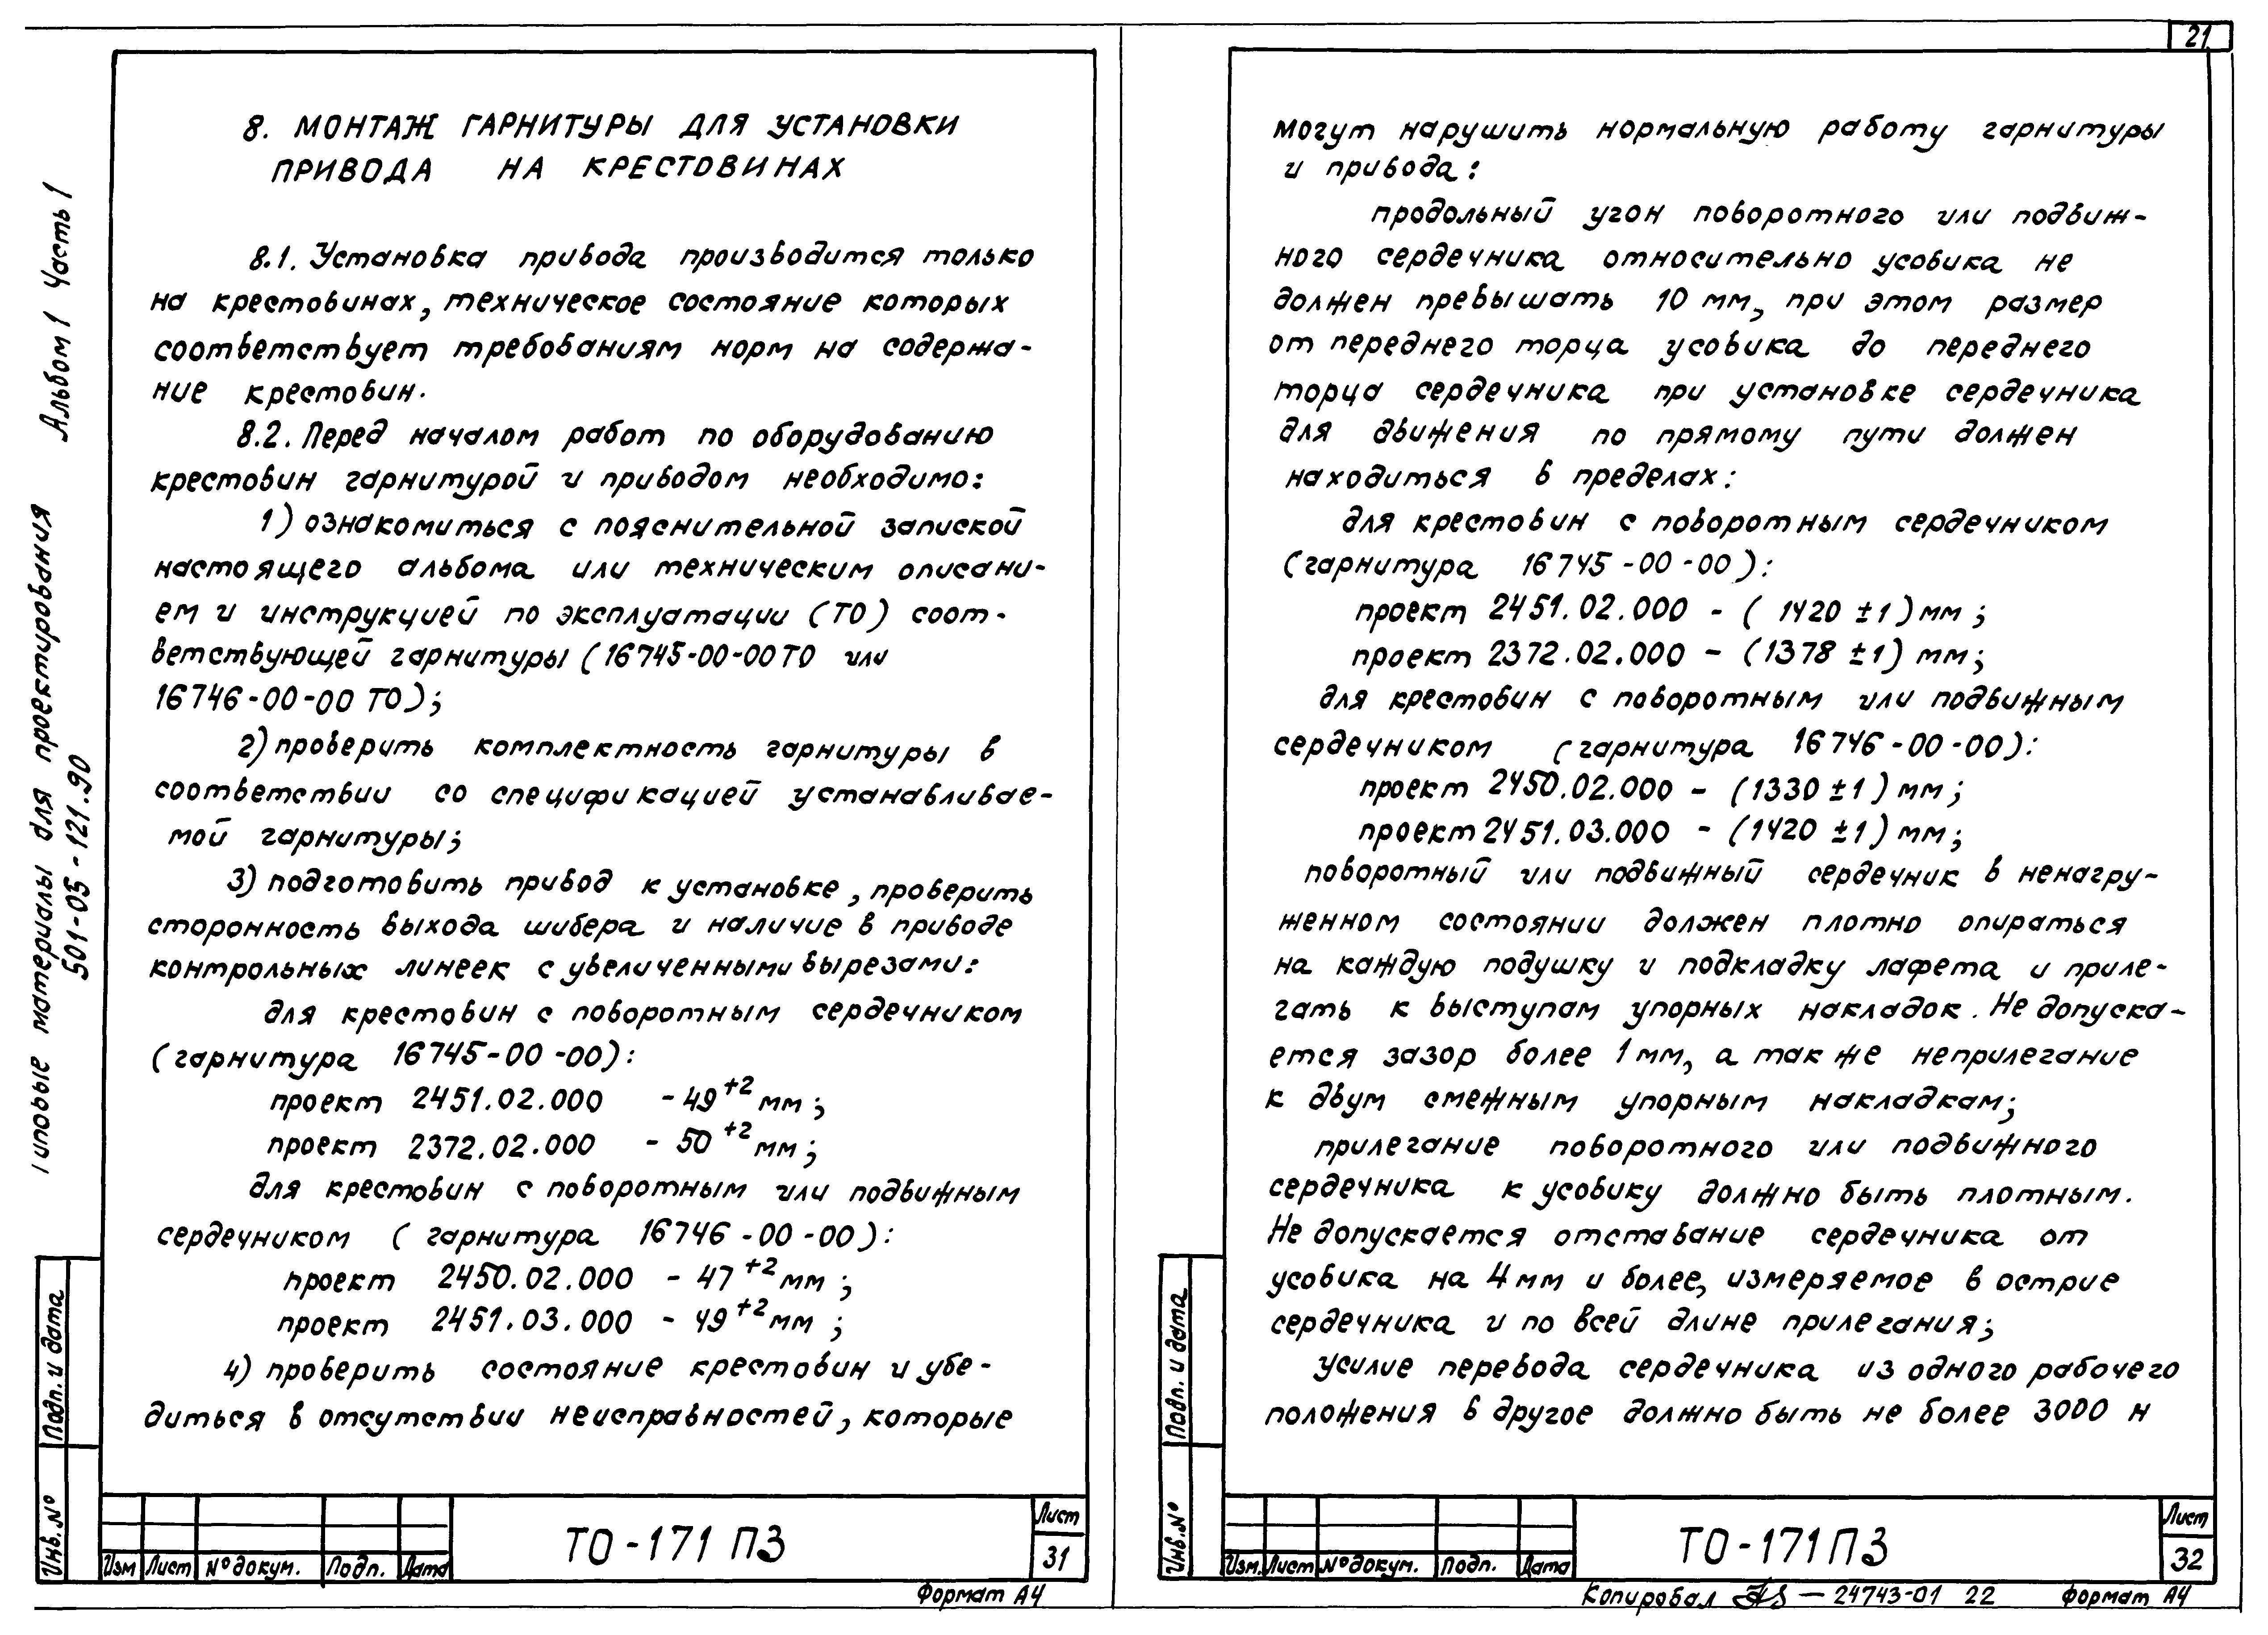 21
Типовые материалы для проектирования Альбом 1 Часть 1
501-05-121.90
8. МОНТАЖ ГАРНИТУРЫ ДЛЯ УСТАНОВКИ
ПРИВОДА НА КРЕСТОВИНАХ
8.1. Установка привода производится только
на крестовинах, техническое состояние которых
соответствует требованиям норм на содержа-
ние крестовин.
8.2. Перед началом работ по оборудованию
крестовин гарнитурой и приводом необходимо:
1) ознакомиться с пояснительной запиской
настоящего альбома или техническим описани-
ем и инструкцией по эксплуатации (ТО) соот-
ветствующей гарнитуры (16745-00-00 ТО или
16746-00-00 ТО);
2) проверить комплектность гарнитуры в
соответствии со спецификацией устанавливае-
мой гарнитуры;
3) подготовить привод к установке, проверить
сторонность выхода шибера и наличие в приводе
контрольных линеек с увеличенными вырезами:
для крестовин с поворотным сердечником
(гарнитура 16745-00-00):
проект 2451.02.000 - 49⁺² мм;
проект 2372.02.000 - 50⁺² мм;
для крестовин с поворотным или подвижным
сердечником (гарнитура 16746-00-00):
проект 2450.02.000 - 47⁺² мм;
проект 2451.03.000 - 49⁺² мм;
4) проверить состояние крестовин и убе-
диться в отсутствии неисправностей, которые
Подп. и дата
Инв. №
Изм Лист № докум. Подп. Дата
ТО-171 ПЗ
Лист
31
Формат А4
могут нарушить нормальную работу гарнитуры
и привода:
продольный угон поворотного или подвиж-
ного сердечника относительно усовика не
должен превышать 10 мм, при этом размер
от переднего торца усовика до переднего
торца сердечника при установке сердечника
для движения по прямому пути должен
находиться в пределах:
для крестовин с поворотным сердечником
(гарнитура 16745-00-00):
проект 2451.02.000 - (1420 ±1) мм;
проект 2372.02.000 - (1378 ±1) мм;
для крестовин с поворотным или подвижным
сердечником (гарнитура 16746-00-00):
проект 2450.02.000 - (1330 ±1) мм;
проект 2451.03.000 - (1420 ±1) мм;
поворотный или подвижный сердечник в ненагру-
женном состоянии должен плотно опираться
на каждую подушку и подкладку лафета и приле-
гать к выступам упорных накладок. Не допуска-
ется зазор более 1 мм, а так же неприлегание
к двум смежным упорным накладкам;
прилегание поворотного или подвижного
сердечника к усовику должно быть плотным.
Не допускается отставание сердечника от
усовика на 4 мм и более, измеряемое в острие
сердечника и по всей длине прилегания;
усилие перевода сердечника из одного рабочего
положения в другое должно быть не более 3000 н
Подп. и дата
Инв. №
Изм. Лист № докум. Подп. Дата
ТО-171 ПЗ
Лист
32
Копировал — 24743-01 22 Формат А4